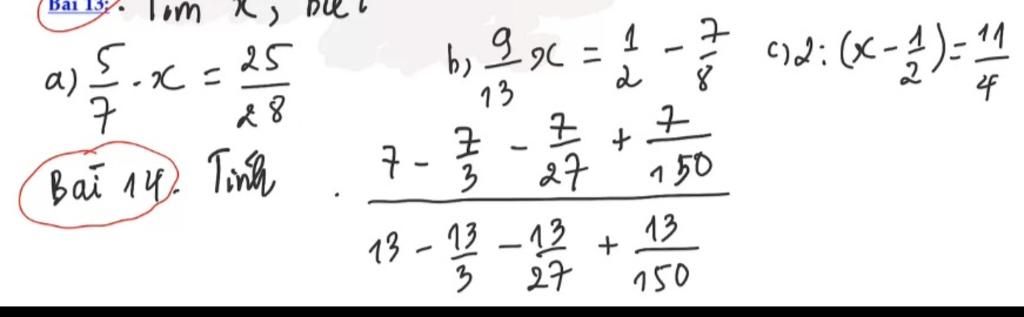 Bài 13: Tìm x, biết
a) 5/7 . x = 25/28   b, 9/13 x = 1/2 - 7/8   c) 2 : (x - 1/2) = 11/4
Bài 14. Tính (7 - 7/3 - 7/27 + 7/150) / (13 - 13/3 - 13/27 + 13/150)